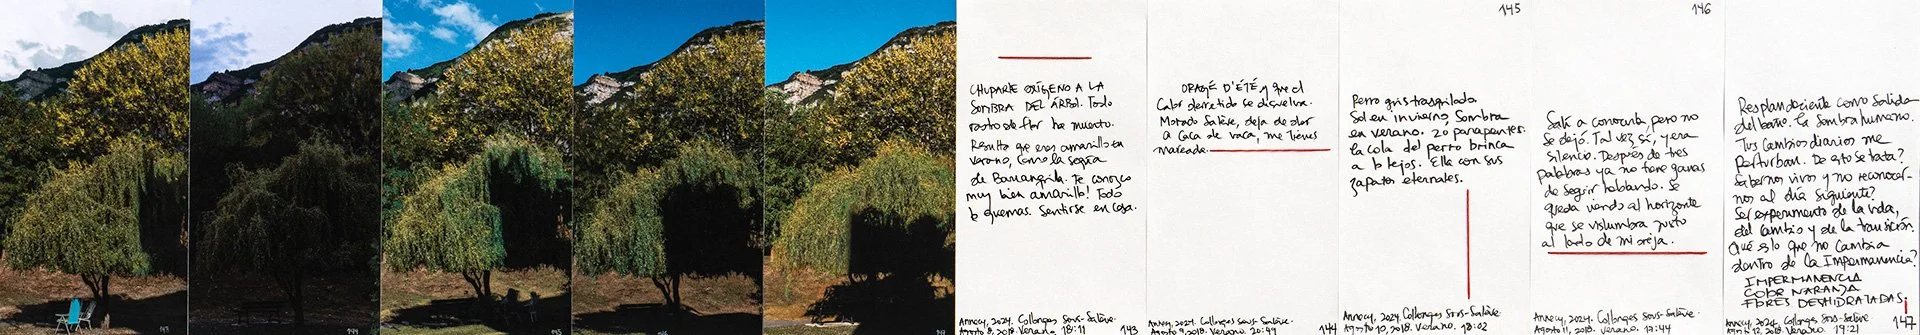 143
144
146
147
CHUPARTE OXÍGENO A LA
SOMBRA DEL ÁRBOL. Todo
rastro de flor ha muerto.
Resulta que eres amarillo en
verano, como la sequía
de Barranquilla. Te conozco
muy bien amarillo! Todo
lo quemas. Sentirse en casa.
Annecy, 2024. Collonges Sous-Salève.
Agosto 8, 2018. Verano. 18:11
143
ORAGE D'ÉTÉ y que el
Calor derretido se disuelva.
Morado Salève, deja de oler
a Caca de vaca, me tienes
mareada.
Annecy, 2024. Collonges Sous-Salève.
Agosto 9, 2018. Verano. 20:49
144
145
Perro gris trasquilado
Sol en invierno, Sombra
en verano. 20 parapentes.
la cola del perro brinca
a lo lejos. Ella con sus
zapatos eternales.
Annecy, 2024. Collonges Sous-Salève.
Agosto 10, 2018. Verano. 18:02
146
Salí a conocerla, pero no
se dejó. Tal vez sí, y era
silencio. Después de tres
palabras ya no tiene ganas
de seguir hablando. Se
queda viendo al horizonte
que se vislumbra justo
al lado de mi oreja.
Annecy, 2024. Collonges Sous-Salève.
Agosto 11, 2018. Verano. 17:44
Resplandeciente como Salida
del baño. La sombra humano.
Tus Cambios diarios me
Perturban. De esto se trata?
Sabernos vivos y no reconocer-
nos al día siguiente?
Ser experimento de la vida,
del cambio y de la transición.
Qué es lo que no Cambia
dentro de la Impermanencia?
IMPERMANENCIA
COBRE NARANJA
FLORES DESHIDRATADAS.
Annecy, 2024. Collonges Sous-Salève
Agosto 12, 2018. Verano. 19:21
147